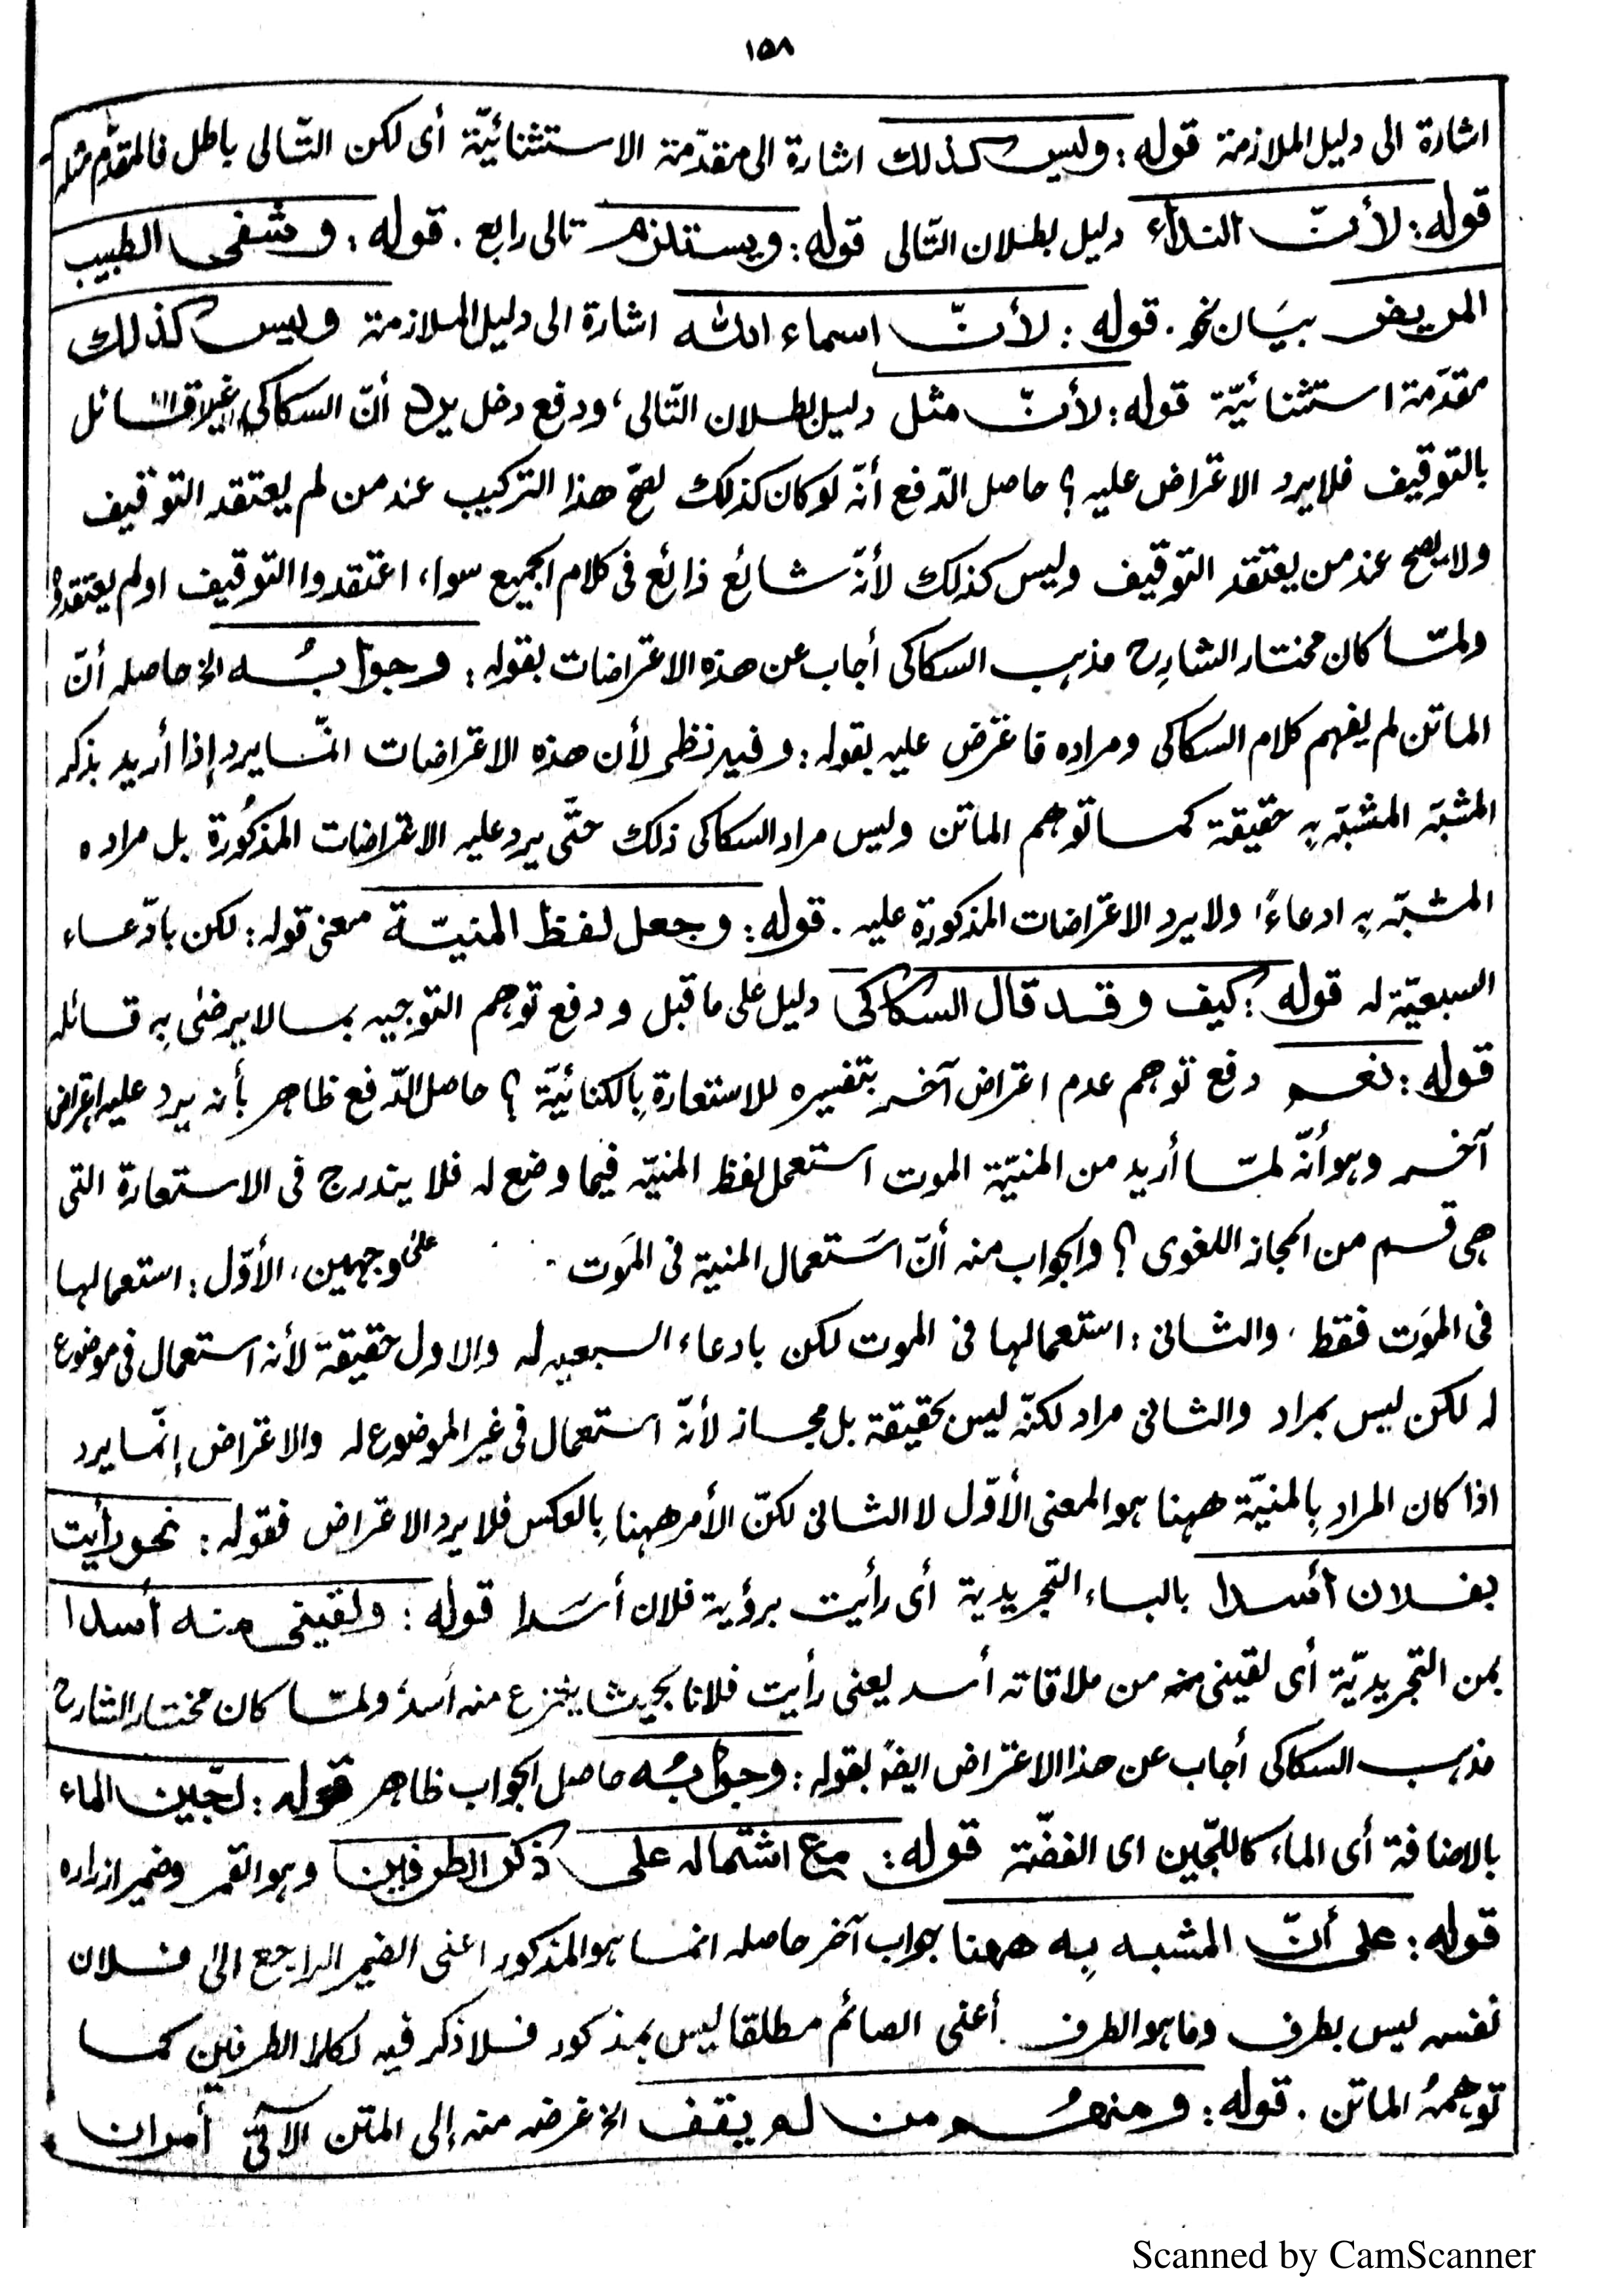 ١٥٨
اشارة الى دليل الملازمة قوله: وليس كذلك اشارة الى مقدّمة الاستثنائيّة أى لكن التّالى باطل فالمقدّم مثله
قوله: لأنّ النداء دليل بطلان التّالى قوله: ويستلزم تالى رابع. قوله: وشفى الطبيب
المريض بيَان نحو. قوله: لأنّ اسماء الله اشارة الى دليل الملازمة وليس كذلك
مقدّمة استثنائيّة قوله: لأنّ مثل دليل بطلان التّالى، ودفع دخل يرد أنّ السكاكى غير قائل
بالتوقيف فلا يرد الاعتراض عليه؟ حاصل الدّفع أنّه لو كان كذلك لصحّ هذا التركيب عند من لم يعتقد التوقيف
ولا يصح عند من يعتقد التوقيف وليس كذلك لأنّه شائع ذائع فى كلام الجميع سواء اعتقدوا التوقيف اولم يعتقدوا
ولمّا كان مختار الشارح مذهب السكاكى أجاب عن هذه الاعتراضات بقوله: وجوابُه الخ حاصله أنّ
الماتن لم يفهم كلام السكاكى ومراده فاعترض عليه بقوله: وفيه نظر لأن هذه الاعتراضات انّما يرد إذا أريد بذكر
المشبّه المشبّه بِه حقيقة كما توهم الماتن وليس مراد السكاكى ذلك حتّى يرد عليه الاعتراضات المذكُورة بل مراده
المشبّه بِه ادعاءً ولا يرد الاعتراضات المذكورة عليه. قوله: وجعل لفظ المنيّة معنى قوله: لكن بادّعاء
السبعيّة له قوله: كيف وقد قال السكاكى دليل على ما قبل ودفع توهم التوجيه بما لا يرضىٰ بِه قائله
قوله: نعم دفع توهم عدم اعتراض آخر بتفسيره للاستعارة بِالكنائيّة؟ حاصل الدّفع ظاهر بأنه يرد عليه اعتراض
آخر وهو أنّه لمّا أريد من المنيّة الموت استعمل لفظ المنيّه فيما وضع له فلا يندرج فى الاستعارة التى
هى قسم من المجاز اللغوى؟ والجواب منه أنّ استعمال المنية فى المَوت علىٰ وجهين، الأوّل: استعمالها
فى المَوت فقط، والثانى: استعمالها فى الموت لكن بادعاء السبعيه له والاول حقيقة لأنه استعمال فى موضوع
له لكن ليس بمراد والثانى مراد لكنّه ليس بحقيقة بل مجاز لأنّه استعمال فى غير الموضوع له والاعتراض إنّما يرد
اذا كان المراد بِالمنيّة ههنا هو المعنى الأوّل لا الثانى لكنّ الأمر ههنا بِالعكس فلا يرد الاعتراض فقوله: نحو رأيت
بفلان أسدا بالباء التجريدية أى رأيت برؤية فلان أسَدا قوله: ولقينى منه أسدا
بمن التجريديّة أى لقينى منه من ملاقاته أسد يعنى رأيت فلانا بحيث ينتزع منه أسدٌ ولمّا كان مختار الشارح
مذهب السكاكى أجاب عن هذا الاعتراض ايضً بقوله: وجوابُه حاصل الجواب ظاهر قوله: لجّين الماء
بالاضافة أى الماء كاللجّين اى الفضّة قوله: مع اشتماله على ذكر الطرفين وهو القمر وضمير ازراره
قوله: على أنّ المشبه بِه ههنا جواب آخر حاصله انما هو المذكور اعنى الضمير الراجع الى فلان
نفسه ليس بطرف وما هو الطرف أعنى الصائم مطلقا ليس بمذكور فلا ذكر فيه لكلا الطرفين كما
توهمهُ الماتن. قوله: ومنهُم من لم يقف الخ غرضه منه إلى المتن الآتى أمران
Scanned by CamScanner